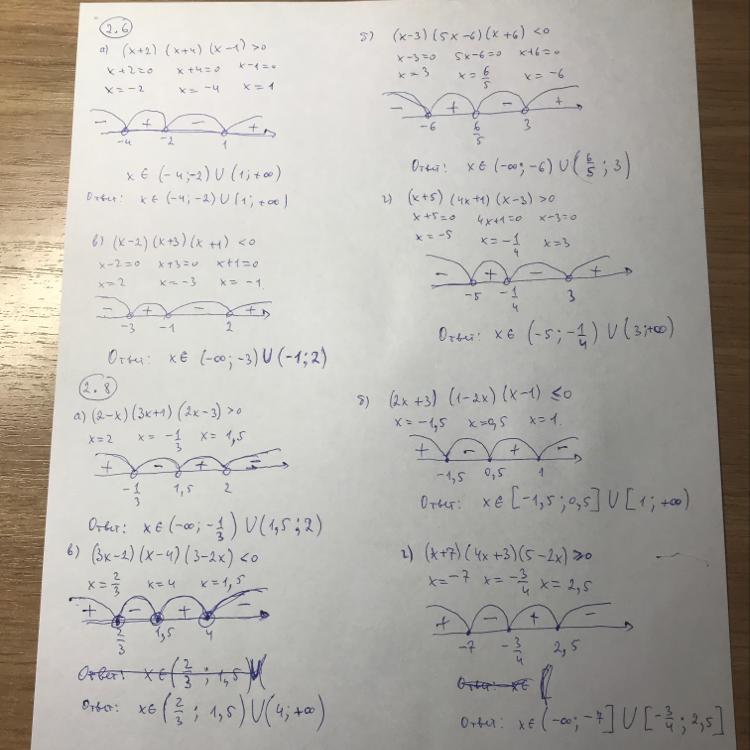 2.6
а) (x+2) (x+4) (x-1) >0
x+2=0 x+4=0 x-1=0
x=-2 x=-4 x=1
- + - +
-4 -2 1
x∈ (-4;-2) ∪ (1;+∞)
Ответ: x∈ (-4;-2) ∪ (1;+∞)
в) (x-2) (x+3) (x+1) <0
x-2=0 x+3=0 x+1=0
x=2 x=-3 x=-1
- + - +
-3 -1 2
Ответ: x∈ (-∞;-3) ∪ (-1;2)
б) (x-3) (5x-6) (x+6) <0
x-3=0 5x-6=0 x+6=0
x=3 x=6/5 x=-6
- + - +
-6 6/5 3
Ответ: x∈ (-∞;-6) ∪ (6/5;3)
г) (x+5) (4x+1) (x-3) >0
x+5=0 4x+1=0 x-3=0
x=-5 x=-1/4 x=3
- + - +
-5 -1/4 3
Ответ: x∈ (-5;-1/4) ∪ (3;+∞)
2.8
а) (2-x) (3x+1) (2x-3) >0
x=2 x=-1/3 x=1,5
+ - + -
-1/3 1,5 2
Ответ: x∈ (-∞;-1/3) ∪ (1,5;2)
в) (3x-2) (x-4) (3-2x) <0
x=2/3 x=4 x=1,5
+ - + -
2/3 1,5 4
Ответ: x∈ (2/3; 1,5) ∪
Ответ: x∈ (2/3; 1,5) ∪ (4;+∞)
б) (2x+3) (1-2x) (x-1) ≤0
x=-1,5 x=0,5 x=1
+ - + -
-1,5 0,5 1
Ответ: x∈ [-1,5;0,5] ∪ [1;+∞)
г) (x+7) (4x+3) (5-2x) ≥0
x=-7 x=-3/4 x=2,5
+ - + -
-7 -3/4 2,5
Ответ: x∈ [
Ответ: x∈ (-∞;-7] ∪ [-3/4; 2,5]